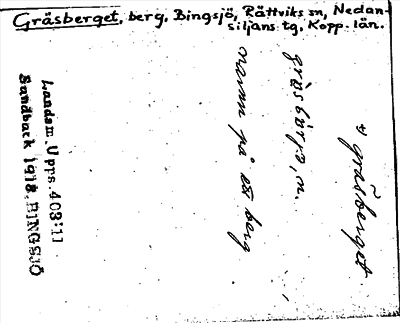 Gräsberget, berg, Bingsjö, Rättviks sn, Nedan-
siljans tg, Kopp. län.
v gräsberget
gräsbärjə, n.
namn på ett berg
Landsm. Upps. 403:11
Sandback 1918. BINGSJÖ